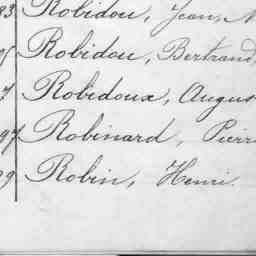 83 Robidou, Jean,
Robidou, Bertrand,
Robidoux, Augus
97 Robinard, Pierr
99 Robin, Henri.